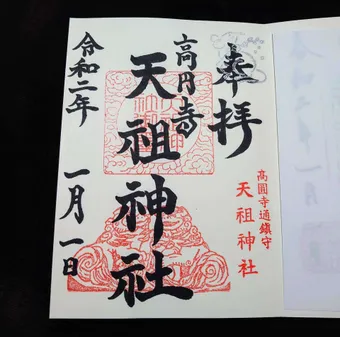 奉拝
高円寺
天祖神社
令和二年
一月一日
高圓寺通鎮守
天祖神社